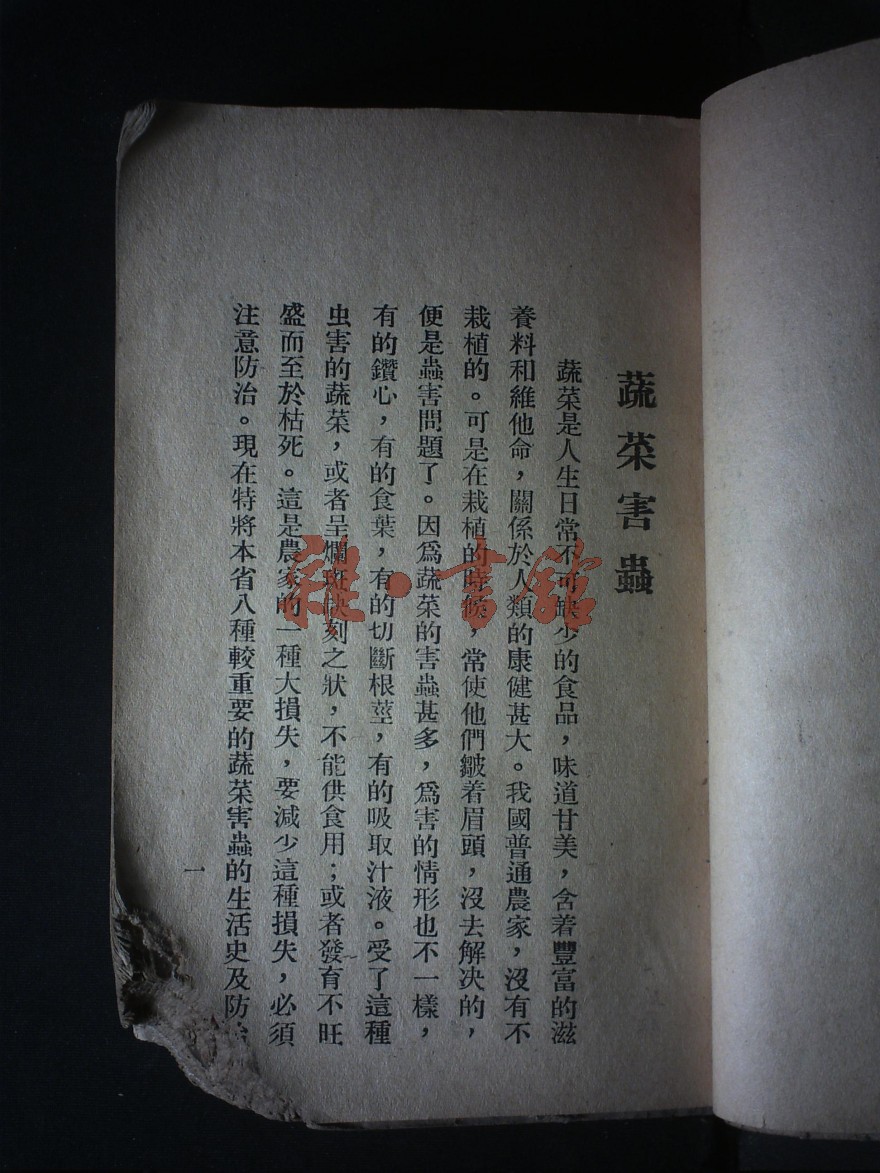 蔬菜害蟲
蔬菜是人生日常不可缺少的食品，味道甘美，含着豐富的滋
養料和維他命，關係於人類的康健甚大。我國普通農家，沒有不
栽植的。可是在栽植的時候，常使他們皺着眉頭，沒去解決的，
便是蟲害問題了。因爲蔬菜的害蟲甚多，爲害的情形也不一樣，
有的鑽心，有的食葉，有的切斷根莖，有的吸取汁液。受了這種
虫害的蔬菜，或者呈爛斑缺刻之狀，不能供食用；或者發育不旺
盛而至於枯死。這是農家的一種大損失，要減少這種損失，必須
注意防治。現在特將本省八種較重要的蔬菜害蟲的生活史及防治
一
雜·書館